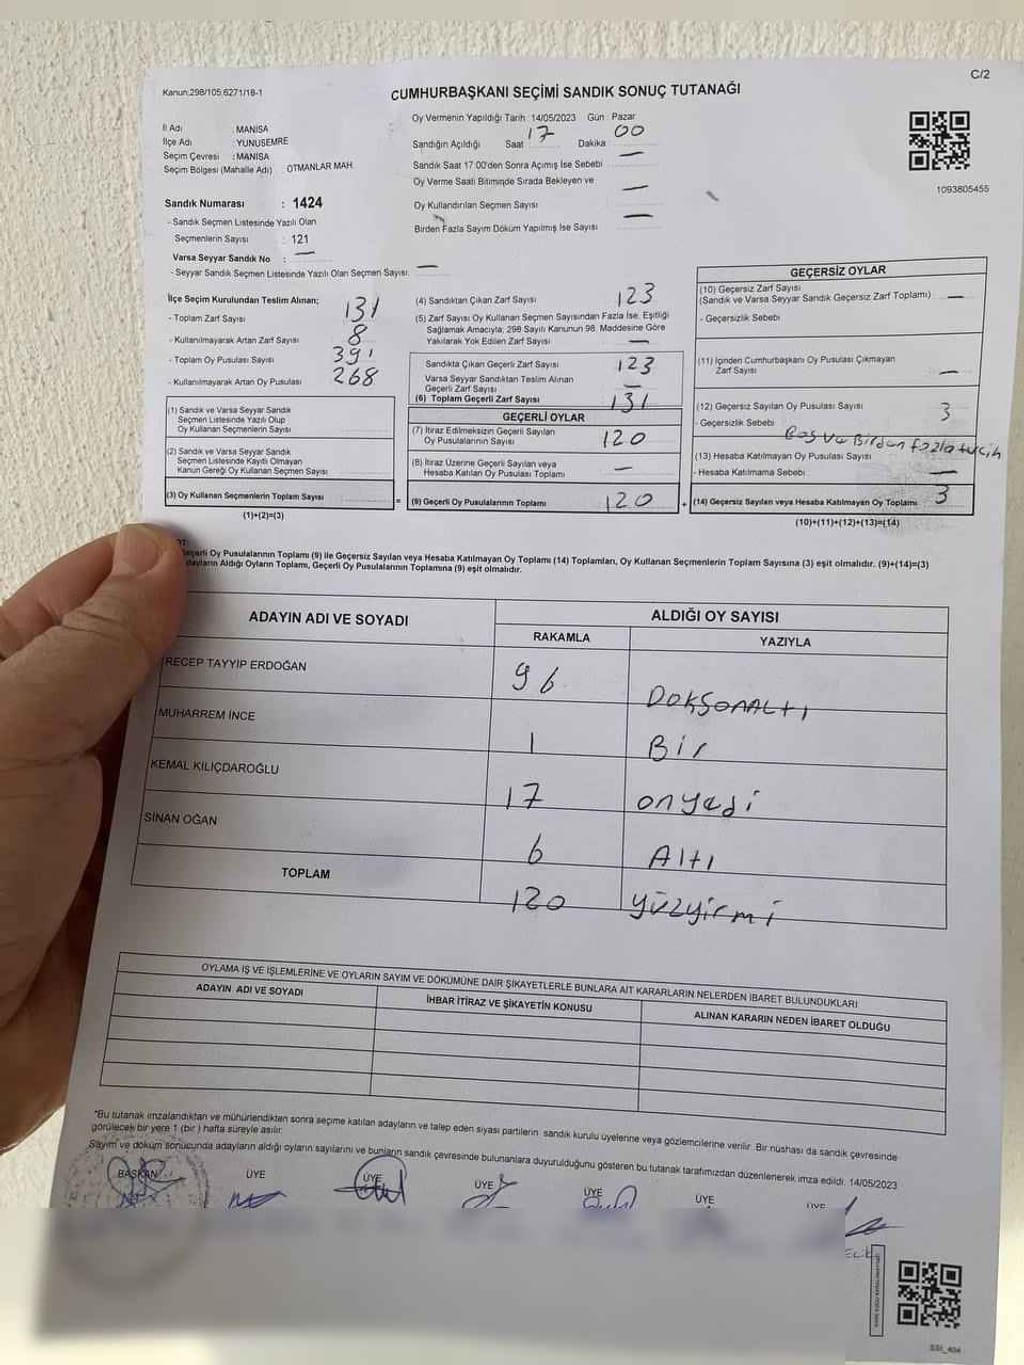 C/2
Kanun:298/105.6271/18-1
CUMHURBAŞKANI SEÇİMİ SANDIK SONUÇ TUTANAĞI
İl Adı : MANİSA
İlçe Adı : YUNUSEMRE
Seçim Çevresi : MANİSA
Seçim Bölgesi (Mahalle Adı) : OTMANLAR MAH.
Sandık Numarası : 1424
- Sandık Seçmen Listesinde Yazılı Olan
Seçmenlerin Sayısı : 121
Varsa Seyyar Sandık No : —
- Seyyar Sandık Seçmen Listesinde Yazılı Olan Seçmen Sayısı: —
Oy Vermenin Yapıldığı Tarih :14/05/2023 Gün : Pazar
Sandığın Açıldığı Saat 17 Dakika 00
Sandık Saat 17:00'den Sonra Açımış İse Sebebi —
Oy Verme Saati Bitiminde Sırada Bekleyen ve
Oy Kullandırılan Seçmen Sayısı —
Birden Fazla Sayım Döküm Yapılmış İse Sayısı —
1093805455
İlçe Seçim Kurulundan Teslim Alınan;
- Toplam Zarf Sayısı 131
- Kullanılmayarak Artan Zarf Sayısı 8
- Toplam Oy Pusulası Sayısı 391
- Kullanılmayarak Artan Oy Pusulası 268
(1) Sandık ve Varsa Seyyar Sandık
Seçmen Listesinde Yazılı Olup
Oy Kullanan Seçmenlerin Sayısı
(2) Sandık ve Varsa Seyyar Sandık
Seçmen Listesinde Kayıtlı Olmayan
Kanun Gereği Oy Kullanan Seçmen Sayısı
(3) Oy Kullanan Seçmenlerin Toplam Sayısı =
(1)+(2)=(3)
(4) Sandıktan Çıkan Zarf Sayısı 123
(5) Zarf Sayısı Oy Kullanan Seçmen Sayısından Fazla İse, Eşitliği
Sağlamak Amacıyla; 298 Sayılı Kanunun 98. Maddesine Göre
Yakılarak Yok Edilen Zarf Sayısı —
Sandıkta Çıkan Geçerli Zarf Sayısı 123
Varsa Seyyar Sandıktan Teslim Alınan
Geçerli Zarf Sayısı —
(6) Toplam Geçerli Zarf Sayısı 131
GEÇERLİ OYLAR
(7) İtiraz Edilmeksizin Geçerli Sayılan
Oy Pusulalarının Sayısı 120
(8) İtiraz Üzerine Geçerli Sayılan veya
Hesaba Katılan Oy Pusulası Toplamı —
(9) Geçerli Oy Pusulalarının Toplamı 120 +
GEÇERSİZ OYLAR
(10) Geçersiz Zarf Sayısı
(Sandık ve Varsa Seyyar Sandık Geçersiz Zarf Toplamı) —
- Geçersizlik Sebebi
(11) İçinden Cumhurbaşkanı Oy Pusulası Çıkmayan
Zarf Sayısı —
(12) Geçersiz Sayılan Oy Pusulası Sayısı 3
- Geçersizlik Sebebi Boş ve Birden fazla tercih
(13) Hesaba Katılmayan Oy Pusulası Sayısı —
- Hesaba Katılmama Sebebi
(14) Geçersiz Sayılan veya Hesaba Katılmayan Oy Toplamı 3
(10)+(11)+(12)+(13)=(14)
Oy Pusulalarının Toplamı (9) ile Geçersiz Sayılan veya Hesaba Katılmayan Oy Toplamı (14) Toplamları, Oy Kullanan Seçmenlerin Toplam Sayısına (3) eşit olmalıdır. (9)+(14)=(3)
Aldığı Oyların Toplamı, Geçerli Oy Pusulalarının Toplamına (9) eşit olmalıdır.
ADAYIN ADI VE SOYADI ALDIĞI OY SAYISI
RAKAMLA YAZIYLA
RECEP TAYYİP ERDOĞAN 96 DOKSANALTI
MUHARREM İNCE 1 Bir
KEMAL KILIÇDAROĞLU 17 onyedi
SİNAN OĞAN 6 Altı
TOPLAM 120 yüzyirmi
OYLAMA İŞ VE İŞLEMLERİNE VE OYLARIN SAYIM VE DÖKÜMÜNE DAİR ŞİKAYETLERLE BUNLARA AİT KARARLARIN NELERDEN İBARET BULUNDUKLARI
ADAYIN ADI VE SOYADI İHBAR İTİRAZ VE ŞİKAYETİN KONUSU ALINAN KARARIN NEDEN İBARET OLDUĞU
"Bu tutanak imzalandıktan ve mühürlendikten sonra seçime katılan adayların ve talep eden siyasi partilerin sandık kurulu üyelerine veya gözlemcilerine verilir. Bir nüshası da sandık çevresinde
görülecek bir yere 1 (bir) hafta süreyle asılır.
Sayım ve döküm sonucunda adayların aldığı oyların sayılarını ve bunların sandık çevresinde bulunanlara duyurulduğunu gösteren bu tutanak tarafımızdan düzenlenerek imza edildi. 14/05/2023
BAŞKAN ÜYE ÜYE ÜYE ÜYE ÜYE ÜYE